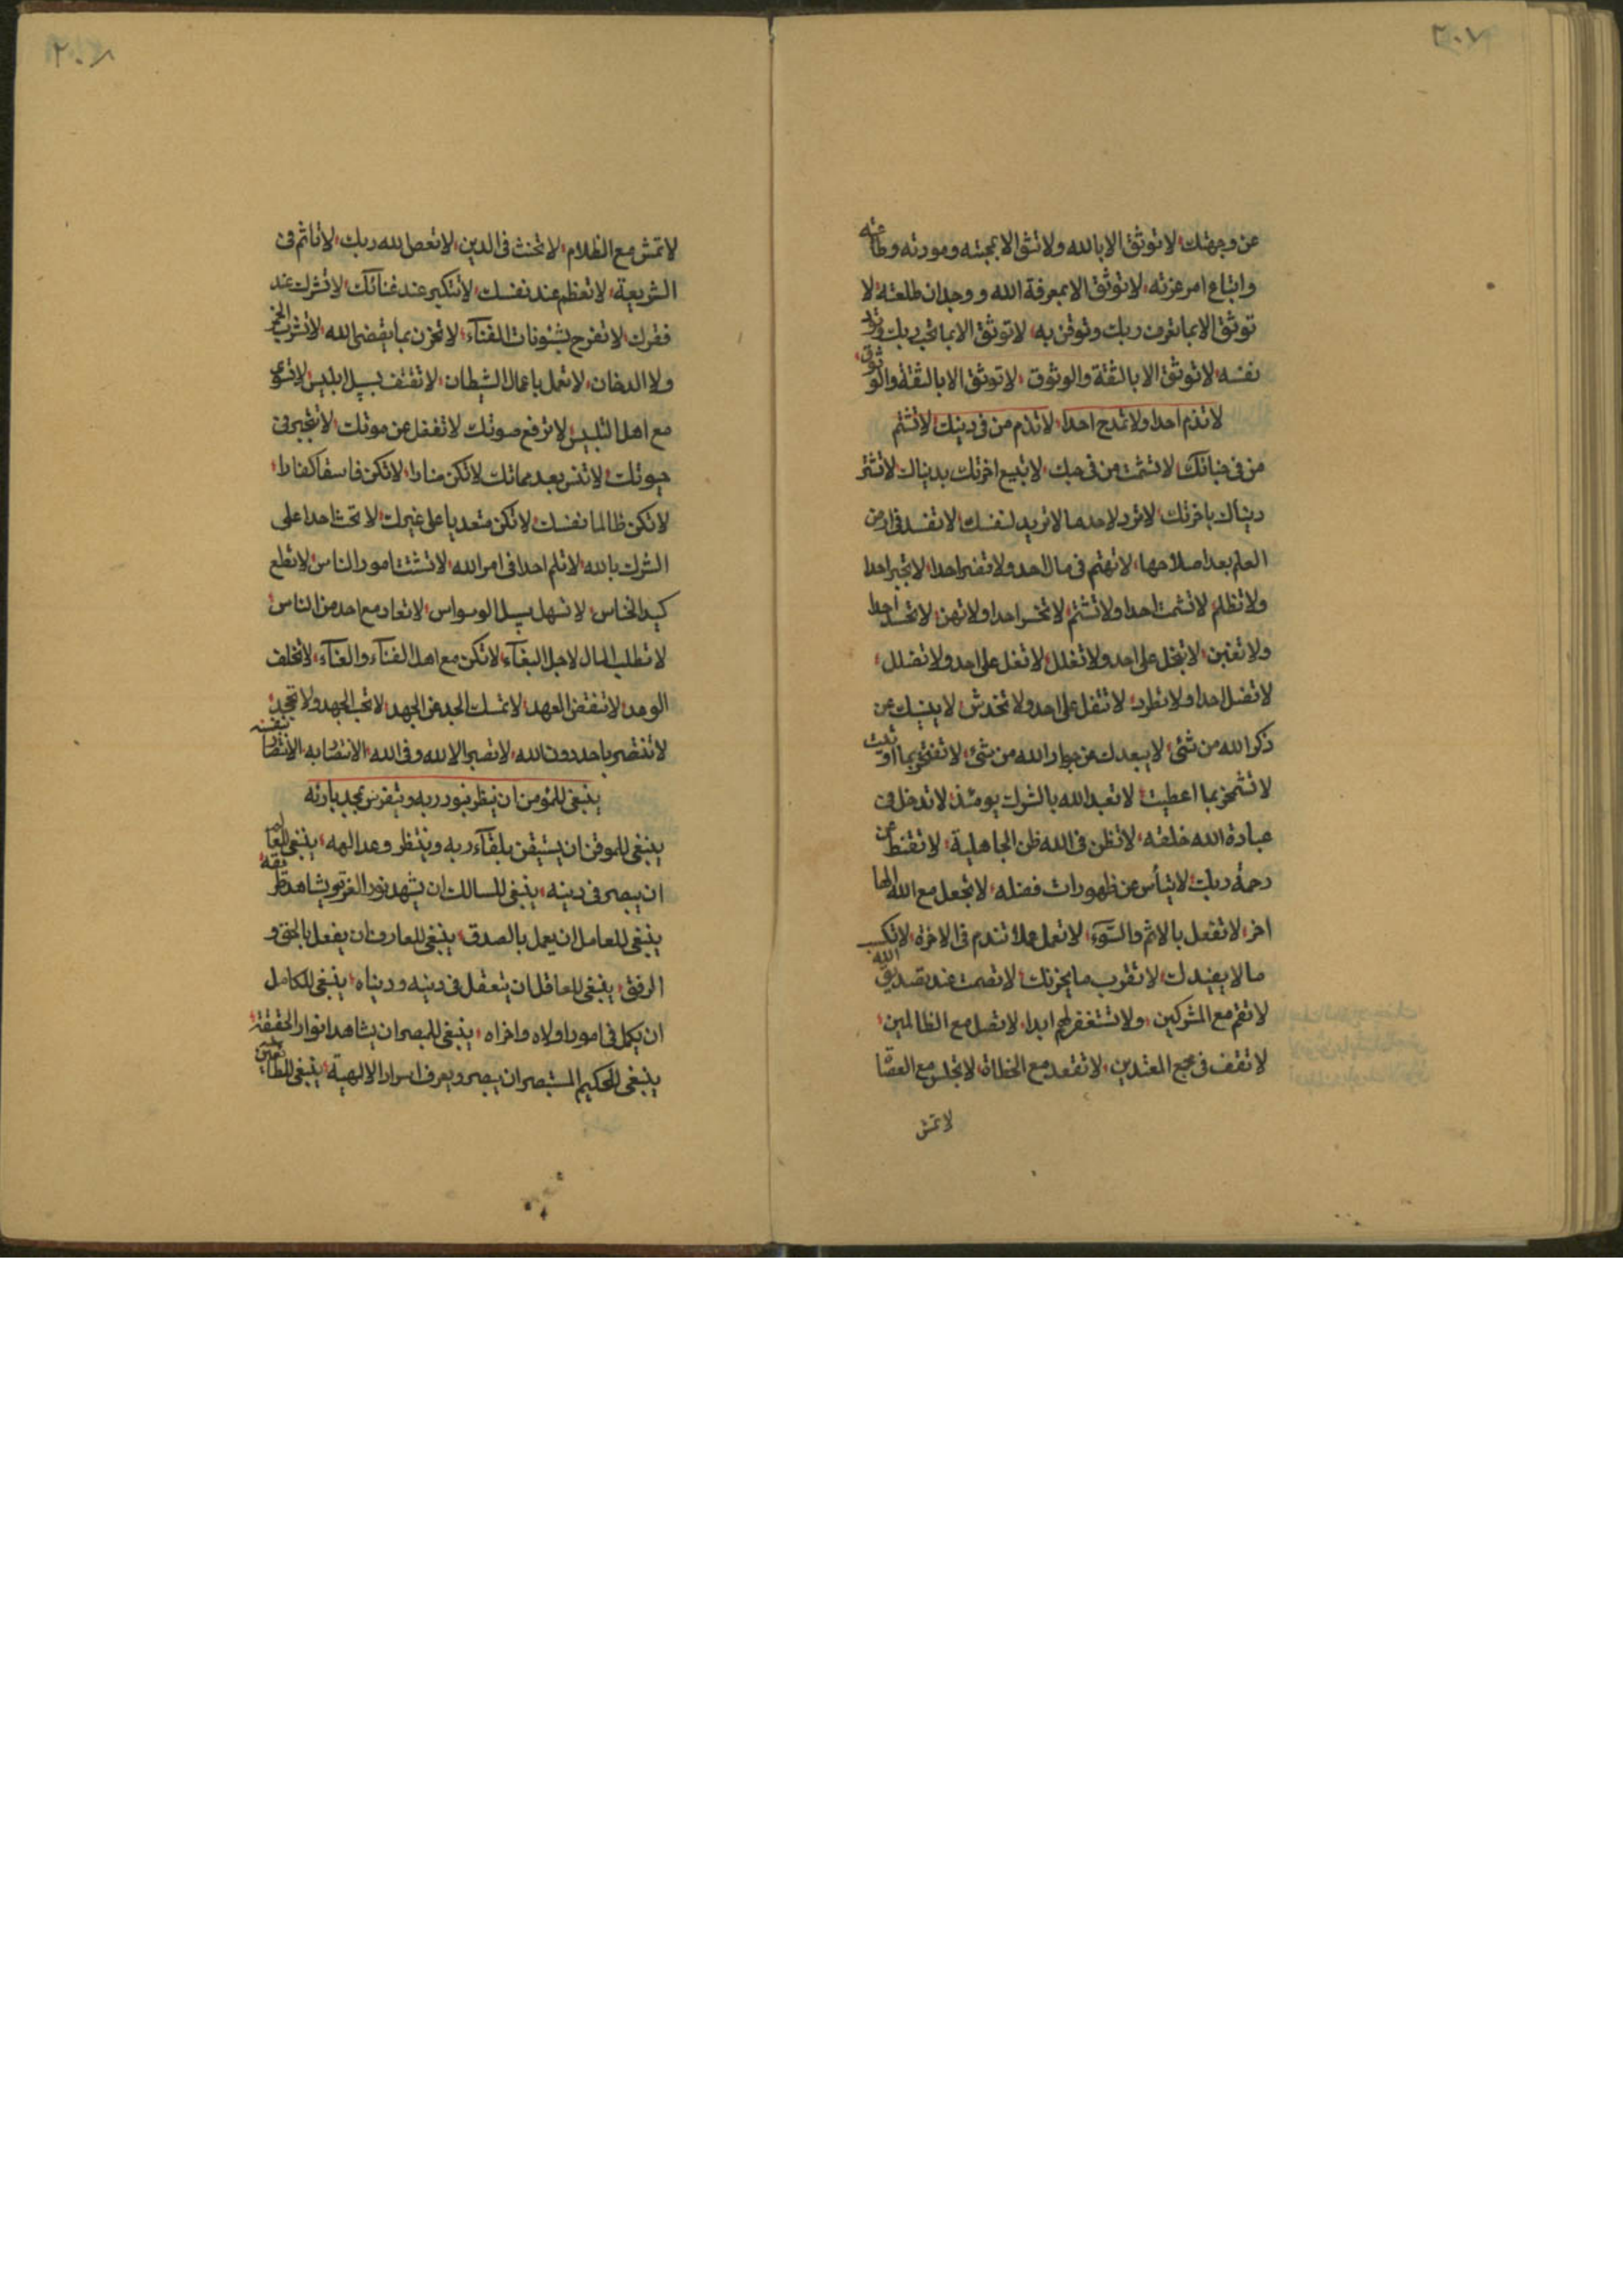 ٢٠٧
عن وجهتك لا توثق الا بالله ولا تثق الا بمحبته ومودته وطاعته
واتباع امر عزته لا توثق الا بمعرفة الله ووجدان طلعته لا
توثق الا بما تعرف ربك وتوقن به لا توثق الا بما تحب ربك
نفسه لا توثق الا بالثقة والوثوق لا توثق الا بالثقة والوثوق
لا تذم احدا ولا تمدح احدا لا تذم من في دينك لا تشتم
من في جنانك لا تشمت من في حبك لا تبيع اخرتك بدنياك لا تشتر
دنياك باخرتك لا ترد لاحد ما لا تريد لنفسك لا تفسد في ارض
العلم بعد اصلاحها لا تهتم في مال احد ولا تفتر احدا لا تجبر احدا
ولا تظلم لا تشمت احدا ولا تشتم لا تخسر احدا ولا تهن لا تحسد احدا
ولا تغبن لا تبخل على احد ولا تغلل لا تغل على احد ولا تضلل
لا تضل احدا ولا تطرد لا تثقل على احد ولا تخدش لا ينسيك عن
ذكر الله من شئ لا يبعدك عن جوار الله من شئ لا تفتخر بما اوتيت
لا تشمخ بما اعطيت لا تعبد الله بالشرك يومئذ لا تدخل في
عبادة الله خلقه لا تظن في الله ظن الجاهلية لا تقنط عن
رحمة ربك لا تيأس عن ظهورات فضله لا تجعل مع الله الها
اخر لا تفعل بالاثم والسوء لا تعمل عملا تندم في الاخرة لا تكسب
ما لا يفيدك لا تقرب ما يحزنك لا تصمت عند تصديق الله
لا تقم مع المشركين ولا تستغفر لهم ابدا لا تصل مع الظالمين
لا تقف في مجمع المعتدين لا تقعد مع الخطاة لا تجلس مع العصاة
لا تمش
٢٠٨
لا تمش مع الظلام لا تخنث في الدين لا تعص الله ربك لا تاثم في
الشريعة لا تعظم عند نفسك لا تتكبر عند غنائك لا تشرك عند
فقرك لا تفرح بشئونات الفناء لا تحزن بما يقضى الله لا تشرب الخمر
ولا الدخان لا تعمل باعمال الشيطان لا تقتف سبيل ابليس لا تسوى
مع اهل التلبيس لا ترفع صوتك لا تغفل عن موتك لا تتجبر في
حيوتك لا تنس بعد مماتك لا تكن ضارا لا تكن فاسقا كفارا
لا تكن ظالما نفسك لا تكن متعديا على غيرك لا تحث احدا على
الشرك بالله لا تلم احدا في امر الله لا تشتت امور الناس لا تطع
كيد الخناس لا تسهل سبيل الوسواس لا تعاد مع احد من الناس
لا تطلب المال لاجل البغآء لا تكن مع اهل الفنآء والغنآء لا تخلف
الوعد لا تنقض العهد لا تمسك الجد عن الجهد لا تحب الجهد ولا تجحد
لا تنتصر باحد دون الله لا تصبر الا لله وفي الله الانتصار به الانتصار بنفسه
ينبغي للمؤمن ان ينظر بنور ربه ويتفرس بمجد بارئه
ينبغي للموقن ان يستيقن بلقآء ربه وينتظر وعد الهه ينبغي للعالم
ان يبصر في دينه ينبغي للسالك ان يشهد نور العزة ويشاهد طريقه
ينبغي للعامل ان يعمل بالصدق ينبغي للعارف ان يفعل بالحق و
الرفق ينبغي للعاقل ان يتعقل في دينه ودنياه ينبغي للكامل
ان يكمل في امور اولاه واخراه ينبغي للمبصر ان يشاهد انوار الحقيقة
ينبغي للحكيم المستبصر ان يبصر ويعرف اسرار الالهية ينبغي